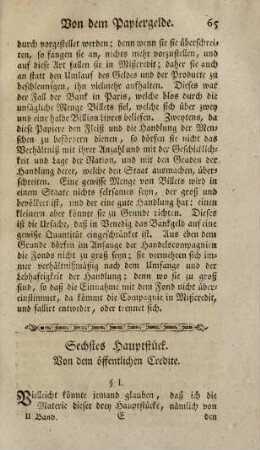 Von dem Papiergelde. 65
durch vorgestellet werden; denn wenn sie sie überschrei-
ten, so fangen sie an, nichts mehr vorzustellen, und
auf diese Art fallen sie in Mißcredit; daher sie auch
an statt den Umlauf des Geldes und der Producte zu
beschleunigen, ihn vielmehr aufhalten. Dieses war
der Fall der Bank in Paris, welche blos durch die
unsägliche Menge Billets fiel, welche sich über zwey
und eine halbe Billion Livres beliefen. Zweytens, da
diese Papiere den Fleiß und die Handlung der Men-
schen zu befördern dienen, so dörfen sie nicht das
Verhältniß mit ihrer Anzahl und mit der Geschicklich-
keit und Lage der Nation, und mit den Graden der
Handlung derer, welche den Staat ausmachen, über-
schreiten. Eine gewisse Menge von Billets wird in
einem Staate nichts seltsames seyn, der groß und
bevölkert ist, und der eine gute Handlung hat: einen
kleinern aber könnte sie zu Grunde richten. Dieses
ist die Ursache, daß in Venedig das Bankgeld auf eine
gewisse Quantität eingeschränkt ist. Aus eben dem
Grunde dörfen im Anfange der Handelscompagnien
die Fonds nicht zu groß seyn; sie vermehren sich im-
mer verhältnißmäßig nach dem Umfange und der
Lebhaftigkeit der Handlung; denn wo sie zu groß
sind, so daß die Einnahme mit dem Fond nicht über-
einstimmet, da kömmt die Compagnie in Mißcredit,
und fallirt entweder, oder trennet sich.
Sechstes Hauptstück.
Von dem öffentlichen Credite.
§ 1.
Vielleicht könnte jemand glauben, daß ich die
Materie dieser drey Hauptstücke, nämlich von
II Band. E den